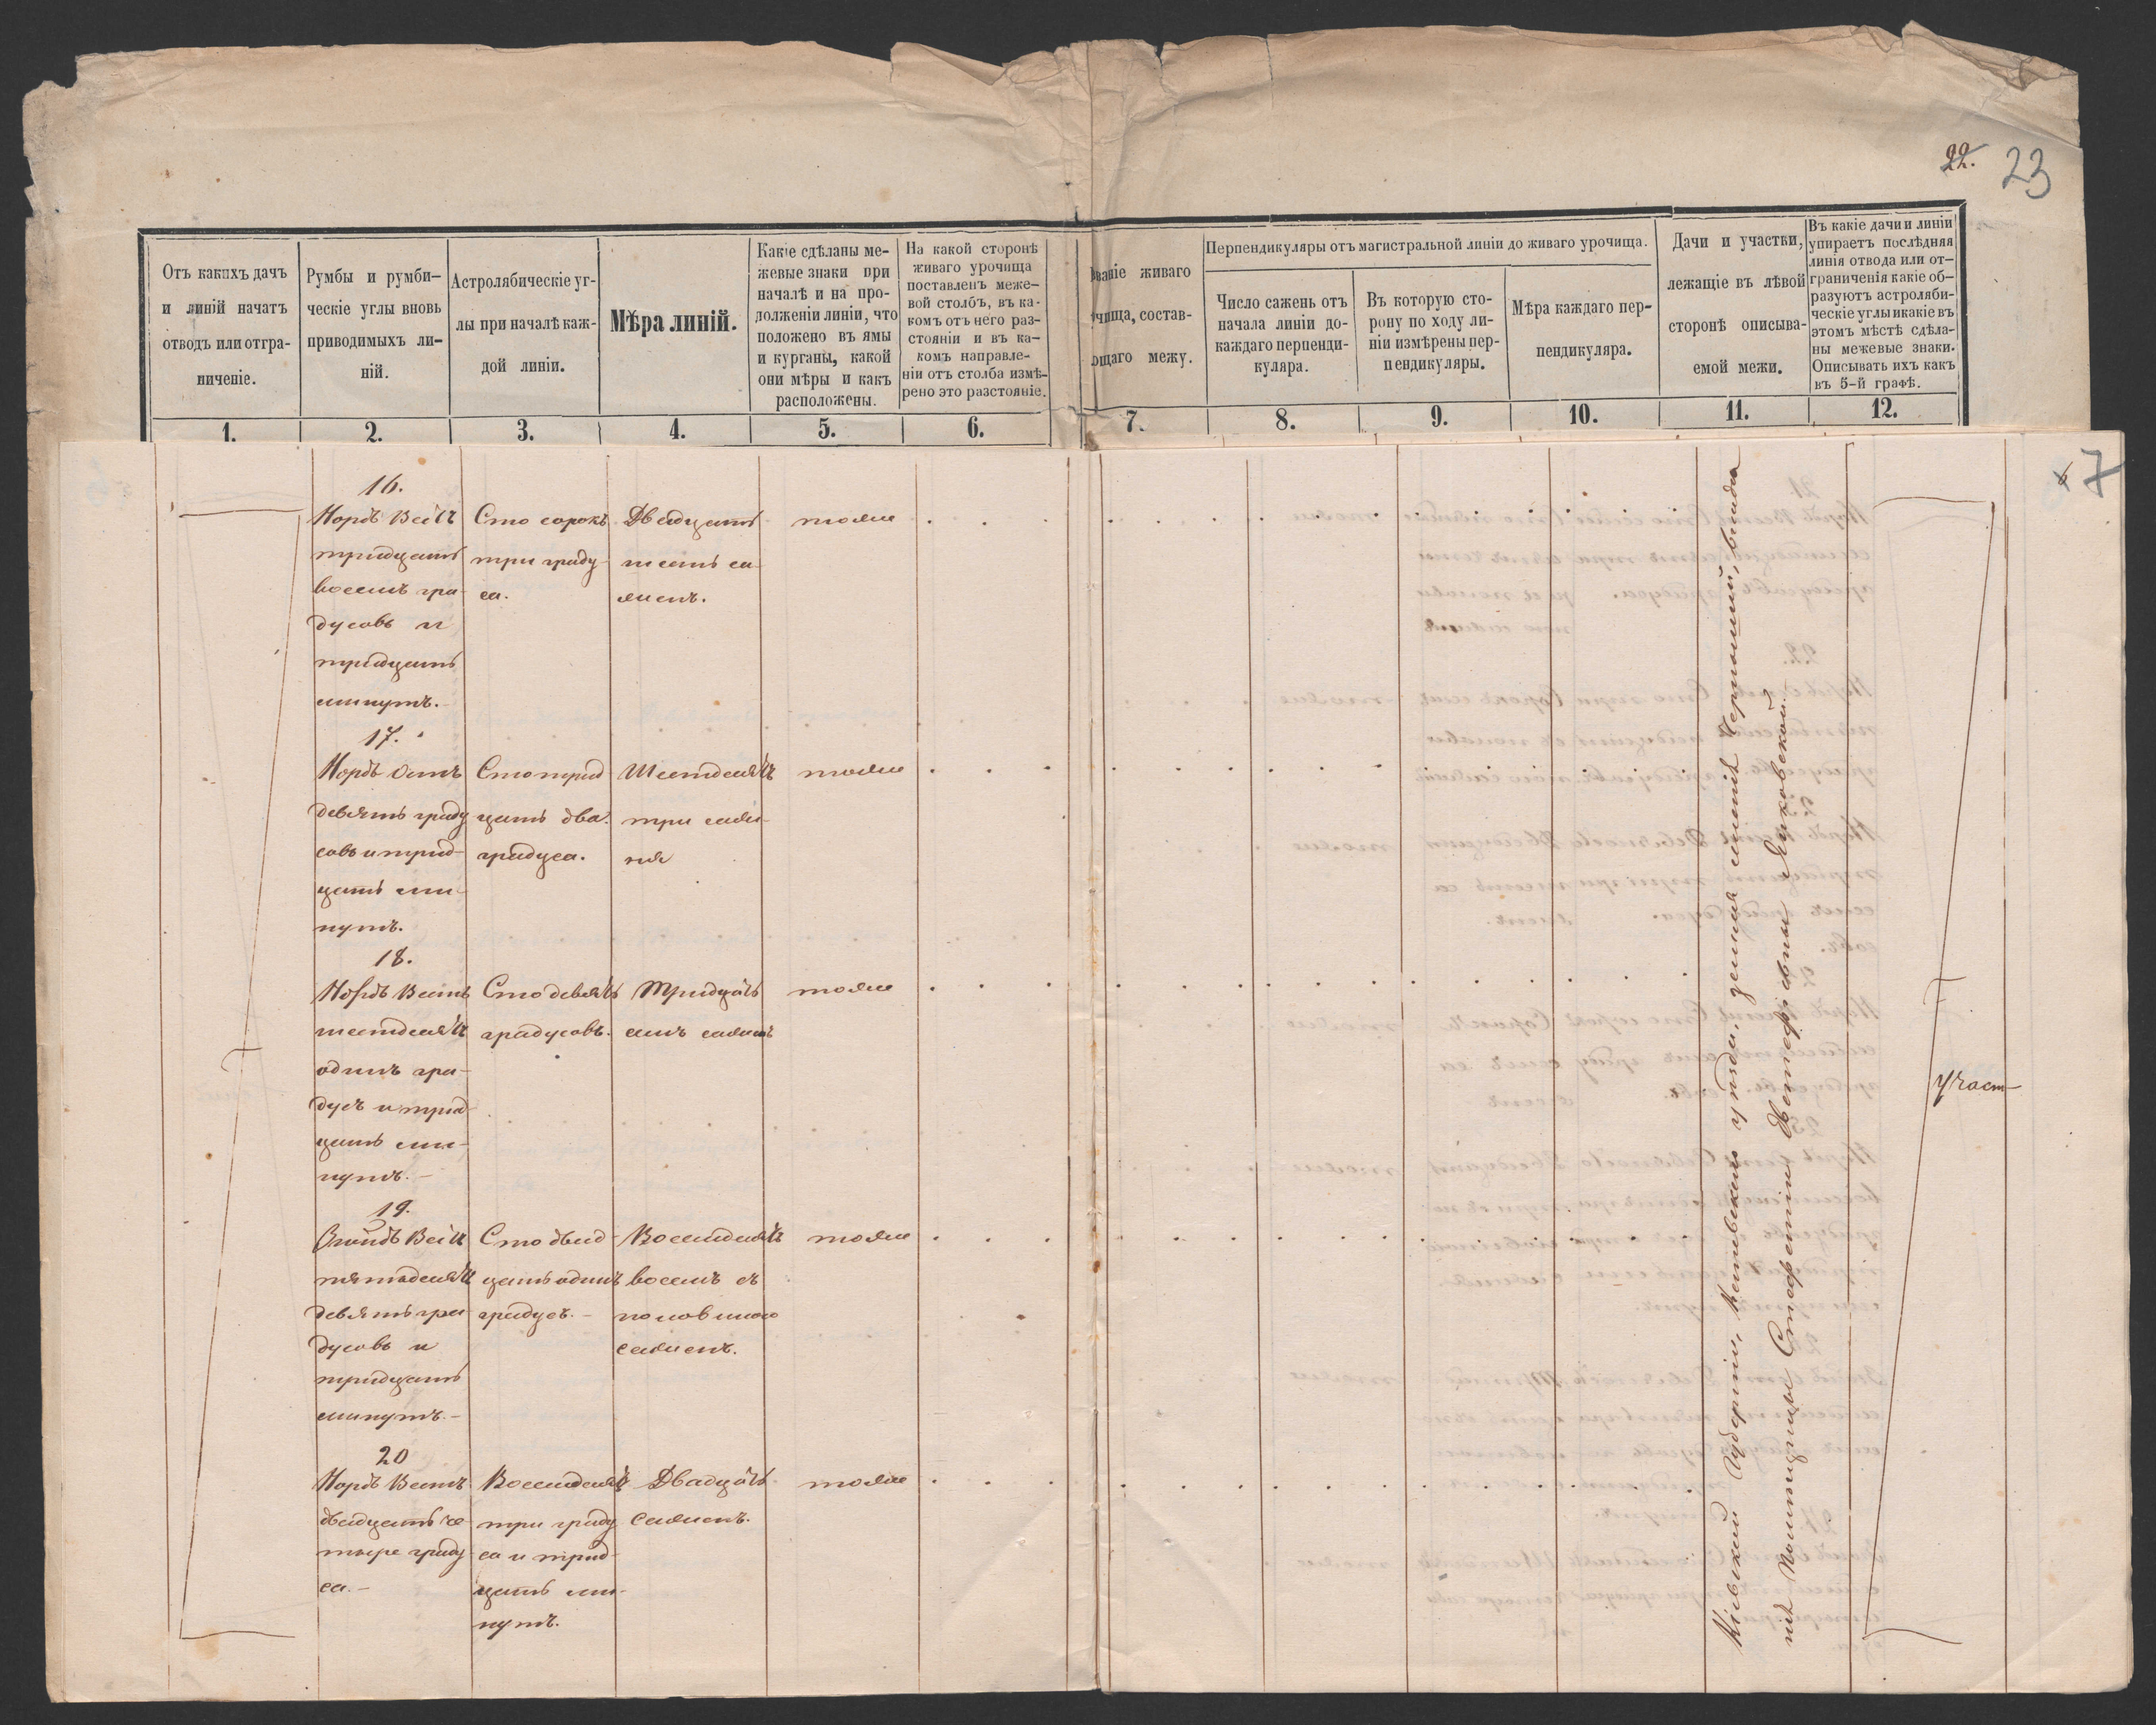 22. 23
Отъ какихъ дачъ
и линій начатъ
отводъ или отгра-
ниченіе.
Румбы и румби-
ческіе углы вновь
приводимыхъ ли-
ній.
Астролябическіе уг-
лы при началѣ каж-
дой линіи.
Мѣра линій.
Какіе сдѣланы ме-
жевые знаки при
началѣ и на про-
долженіи линіи, что
положено въ ямы
и курганы, какой
они мѣры и какъ
расположены.
На какой сторонѣ
живаго урочища
поставленъ меже-
вой столбъ, въ ка-
комъ отъ него раз-
стояніи и въ ка-
комъ направле-
ніи отъ столба измѣ-
рено это разстояніе.
званіе живаго
очища, состав-
ющаго межу.
Перпендикуляры отъ магистральной линіи до живаго урочища.
Число сажень отъ
начала линіи до-
каждаго перпенди-
куляра.
Въ которую сто-
рону по ходу ли-
ніи измѣрены пер-
пендикуляры.
Мѣра каждаго пер-
пендикуляра.
Дачи и участки,
лежащіе въ лѣвой
сторонѣ описыва-
емой межи.
Въ какіе дачи и линіи
упираетъ послѣдняя
линія отвода или от-
граниченія какіе об-
разуютъ астроляби-
ческіе углы и какіе въ
этомъ мѣстѣ сдѣла-
ны межевые знаки.
Описывать ихъ какъ
въ 5-й графѣ.
1. 2. 3. 4. 5. 6. 7. 8. 9. 10. 11. 12.
7
16.
Нордъ Вестъ
тридцать
восемь гра-
дусовъ и
тридцать
минутъ.
Сто сорокъ
три граду-
са.
Двадцать
шесть са-
женъ.
тоже
17.
Нордъ Остъ
девять граду
совъ и трид-
цать ми-
нутъ.
Сто трид-
цать два
градуса.
Шестдесятъ
три саже-
ня
тоже
18.
Нордъ Вестъ
шестдесятъ
одинъ гра-
дусъ и трид-
цать ми-
нутъ.
Сто девять
градусовъ.
Тридцать
семь саженъ
тоже
19.
Зюйдъ Вестъ
пятьдесятъ
девять гра-
дусовъ и
тридцать
минутъ.
Сто двад-
цать одинъ
градусъ.
Восемдесятъ
восемь съ
половиною
саженъ.
тоже
20
Нордъ Вестъ
двадцать че
тыре граду
са.
Восемдесятъ
три граду
са и трид-
цать ми-
нутъ.
Двадцать
саженъ.
тоже
Кіевской Губерніи, Каневскаго уѣзда, земля имѣнія
ніе Помѣщицы
участ-